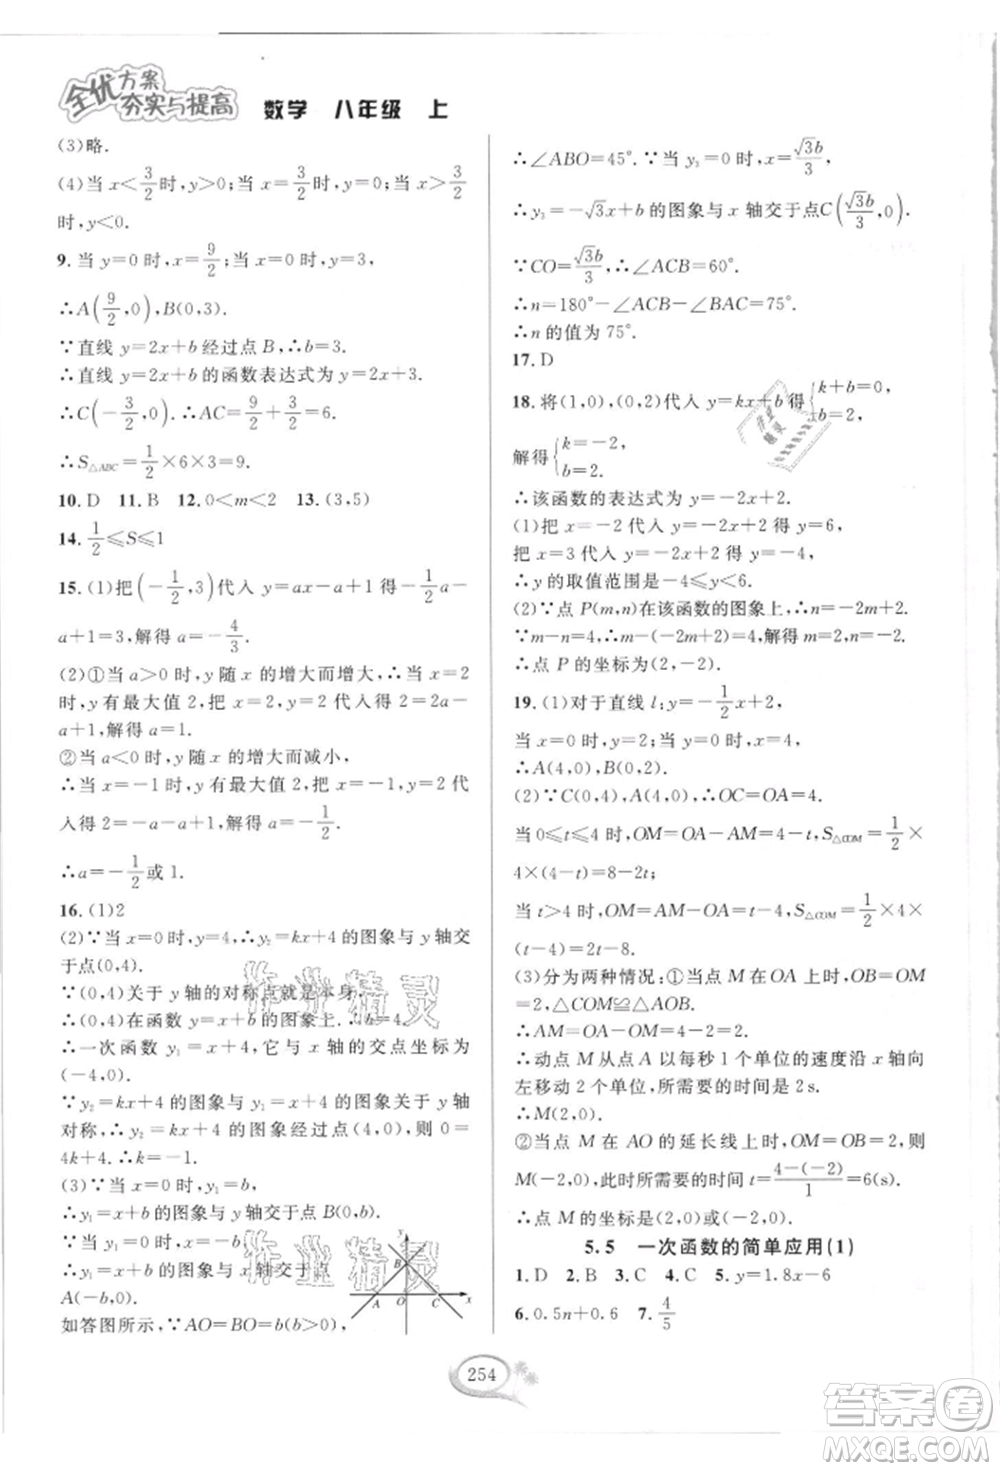 全优方案
夯实与提高
数学 八年级 上
(3)略.
(4)当 x<3/2时,y>0;当 x=3/2时,y=0;当 x>3/2
时,y<0.
9.当 y=0 时,x=9/2;当 x=0 时,y=3,
∴A(9/2,0),B(0,3).
∵直线 y=2x+b 经过点 B,∴b=3.
∴直线 y=2x+b 的函数表达式为 y=2x+3.
∴C(-3/2,0).∴AC=9/2+3/2=6.
∴S△ABC=1/2×6×3=9.
10.D 11.B 12.0<m<2 13.(3,5)
14.1/2≤S≤1
15.(1)把(-1/2,3)代入 y=ax-a+1 得-1/2a-
a+1=3,解得 a=-4/3.
(2)①当 a>0 时,y 随 x 的增大而增大,∴当 x=
2 时,y 有最大值 2,把 x=2,y=2 代入得 2=2a-
a+1,解得 a=1.
②当 a<0 时,y 随 x 的增大而减小,
∴当 x=-1 时,y 有最大值 2,把 x=-1,y=2 代
入得 2=-a-a+1,解得 a=-1/2.
∴a=-1/2或 1.
16.(1)2
(2)∵当 x=0 时,y=4,∴y₂=kx+4 的图象与 y轴交
于点(0,4).
∵(0,4)关于 y 轴的对称点就是本身,
∴(0,4)在函数 y₁=x+b 的图象上.∴b=4.
∴一次函数 y₁=x+4,它与 x 轴的交点坐标为
(-4,0).
∵y₂=kx+4 的图象与 y₁=x+4 的图象关于 y 轴
对称,∴y₂=kx+4 的图象经过点(4,0),则 0=
4k+4,∴k=-1.
(3)∵当 x=0 时,y₁=b,
∴y₁=x+b 的图象与 y 轴交于点B(0,b).
∵当 y₁=0 时,x=-b,
∴y₁=x+b 的图象与 x 轴交于点
A(-b,0).
如答图所示,∵AO=BO=b(b>0),
y
B
A O C x
∴∠ABO=45°.∵当 y₃=0 时,x=√3b/3,
∴y₃=-√3x+b 的图象与 x 轴交于点C(√3b/3,0).
∵CO=√3b/3,∴∠ACB=60°.
∴n=180°-∠ACB-∠BAC=75°.
∴n 的值为 75°.
17.D
18.将(1,0),(0,2)代入 y=kx+b 得{k+b=0, b=2,
解得{k=-2, b=2.
∴该函数的表达式为 y=-2x+2.
(1)把 x=-2 代入 y=-2x+2 得 y=6,
把 x=3 代入 y=-2x+2 得 y=-4,
∴y 的取值范围是-4≤y<6.
(2)∵点 P(m,n)在该函数的图象上,∴n=-2m+2.
∵m-n=4,∴m-(-2m+2)=4,解得 m=2,n=-2,
∴点 P 的坐标为(2,-2).
19.(1)对于直线 l:y=-1/2x+2,
当 x=0 时,y=2;当 y=0 时,x=4,
∴A(4,0),B(0,2).
(2)∵C(0,4),A(4,0),∴OC=OA=4.
当 0≤t≤4 时,OM=OA-AM=4-t,S△COM=1/2×
4×(4-t)=8-2t;
当 t>4 时,OM=AM-OA=t-4,S△COM=1/2×4×
(t-4)=2t-8.
(3)分为两种情况:①当点 M 在 OA 上时,OB=OM
=2,△COM≌△AOB.
∴AM=OA-OM=4-2=2.
∴动点 M 从点 A 以每秒 1 个单位的速度沿 x 轴向
左移动 2 个单位,所需要的时间是 2 s.
∴M(2,0).
②当点 M 在 AO 的延长线上时,OM=OB=2,则
M(-2,0).此时所需要的时间 t=4-(-2)/1=6(s).
∴点 M 的坐标是(2,0)或(-2,0).
5.5 一次函数的简单应用(1)
1.D 2.B 3.C 4.C 5.y=1.8x-6
6.0.5n+0.6 7.4/5
254
作业精灵
作业精灵
作业精灵
答案圈
MXQE.COM